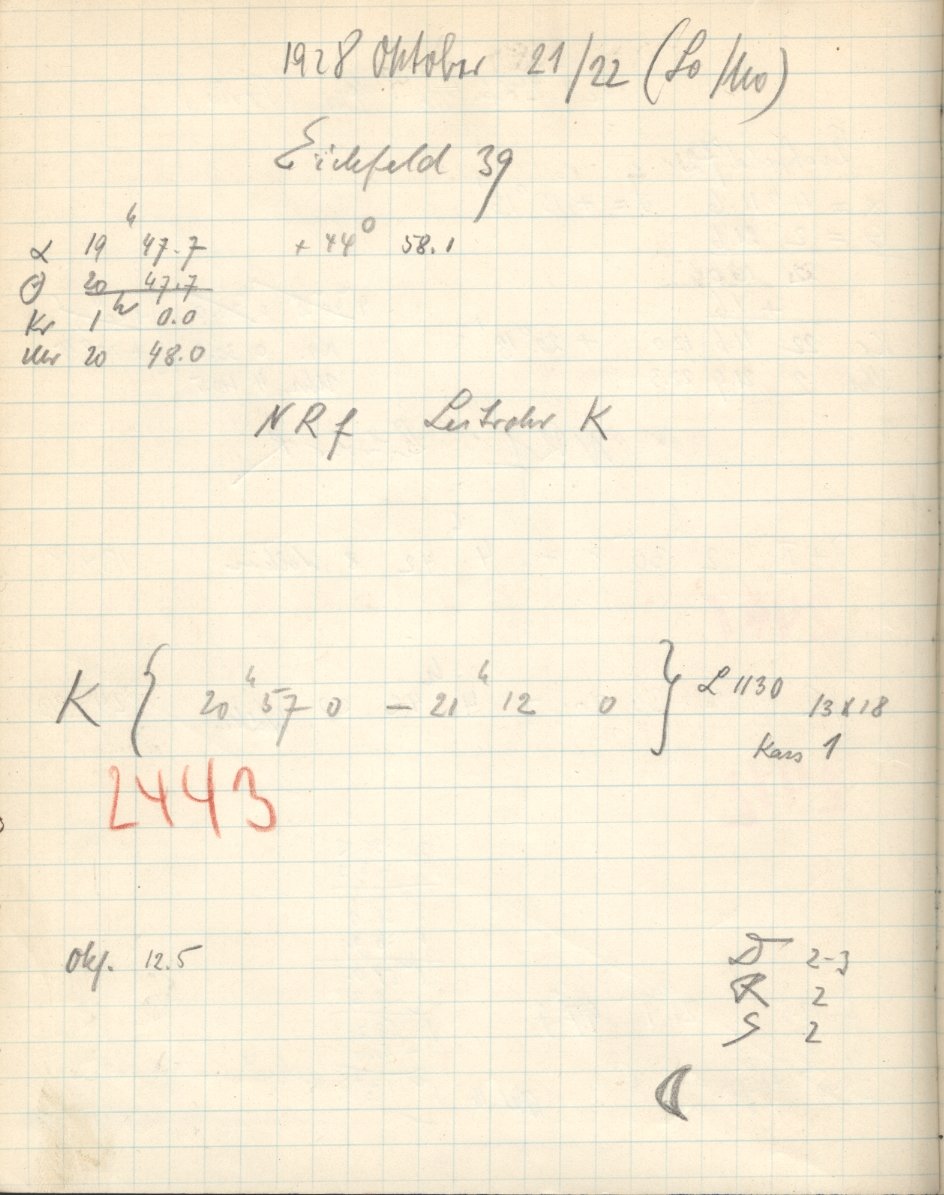 1928 Oktober 21/22 (So/Mo)
Eichfeld 39
α 19ʰ 47.7 + 44⁰ 58.1
Θ 20 47.7
Kr 1ʰ 0.0
Uhr 20 48.0
NRf Leitrohr K
K { 20ʰ 57 0 – 21ʰ 12 0 } L 1130 13x18
Kass 1
2443
Okf. 12.5
D 2-3
R 2
S 2